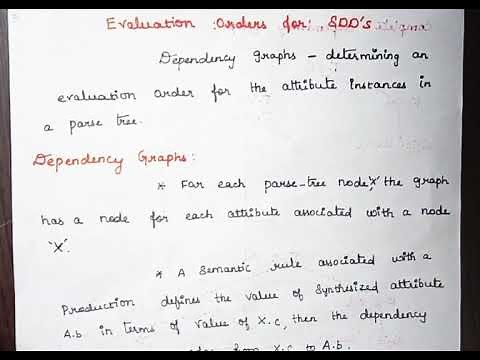 Evaluation Orders for SDD's
Dependency graphs – determining an
evaluation order for the attribute instances in
a parse tree.
Dependency Graphs:
* For each parse-tree node, 'x' the graph
has a node for each attribute associated with a node
'X'.
* A Semantic rule associated with a
Production defines the value of Synthesized attribute
A.b in terms of value of X.c, then the dependency
from X.c to A.b.